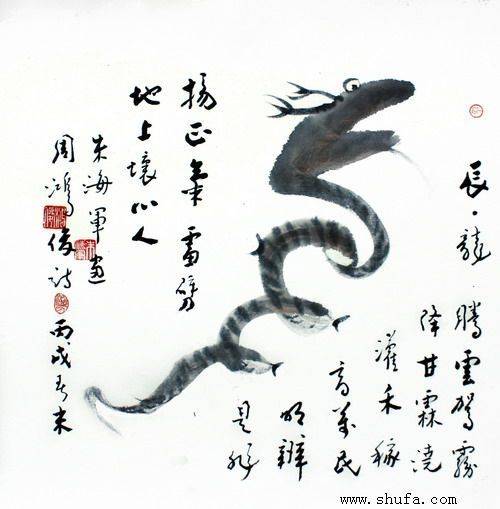 辰·龍
騰雲駕霧
降甘霖澆
灌禾稼
育萬民
明辨
是非
揚正氣 雷劈
地上壞心人
朱海軍画
周鴻俊詩 丙戌春末
www.shufa.com